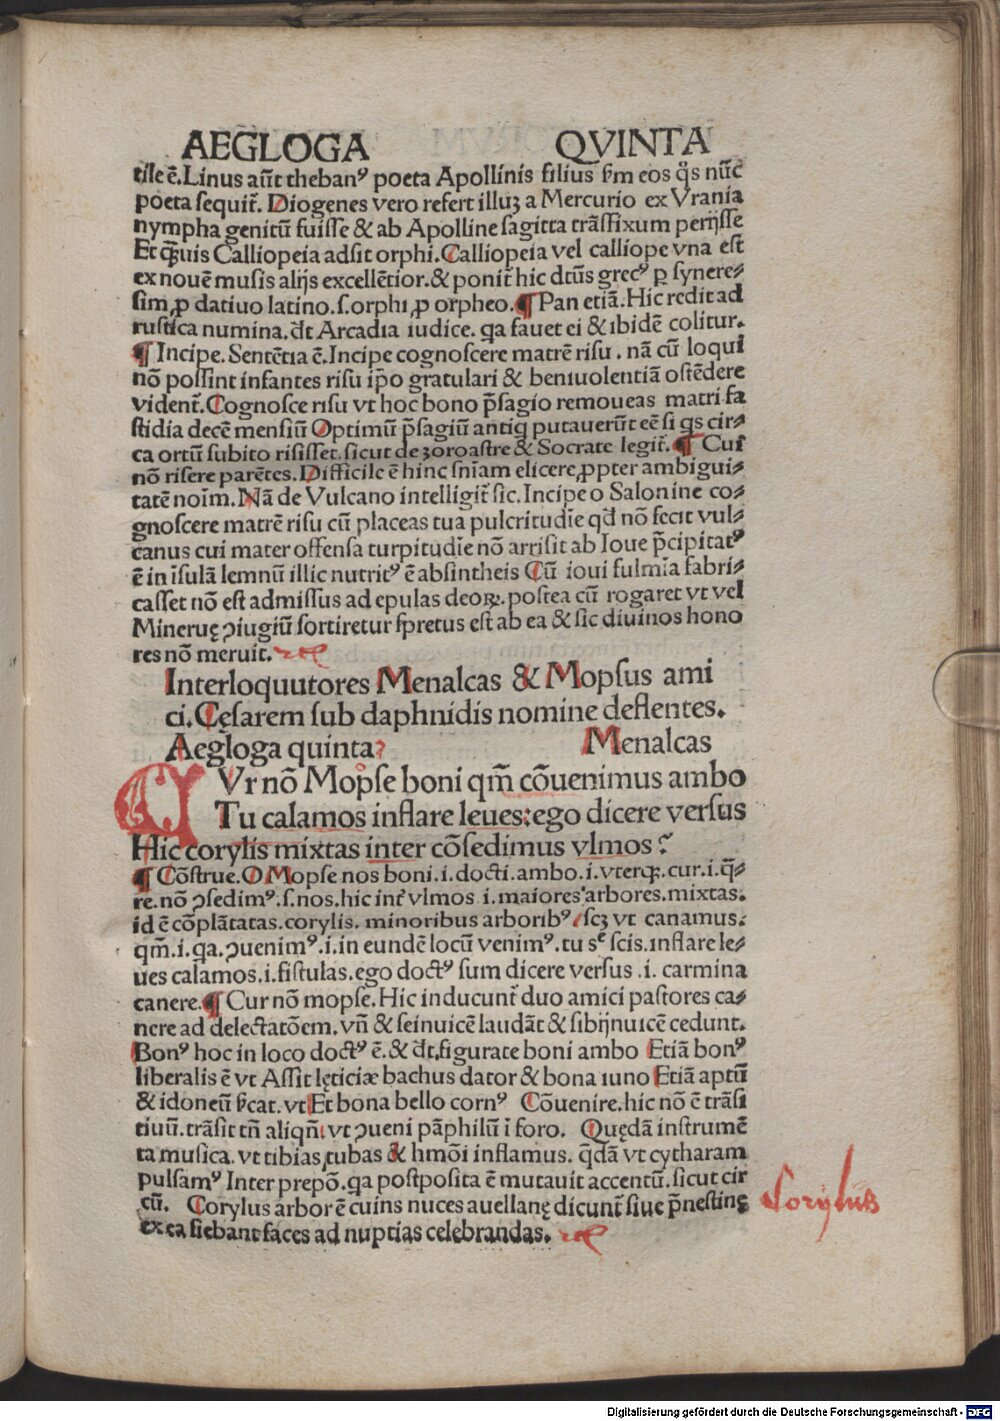 AEGLOGA QVINTA
tile ē. Linus aūt theban⁹ poeta Apollinis filius ẜm eos q̄s nūc
poeta sequit̄. Diogenes vero refert illuʒ a Mercurio ex Vrania
nympha genitū fuisse & ab Apolline sagitta trāsfixum perijsse
Et qᷓuis Calliopeia adsit orphi. Calliopeia vel calliope vna est
ex nouē musis alijs excellētior. & ponit̄ hic dtūs grec⁹ ꝑ synere⸗
sim, ꝓ datiuo latino. s. orphi, ꝓ orpheo. ¶ Pan etiā. Hic redit ad
rustica numina. d̄t Arcadia iudice. qa fauet ei & ibidē colitur.
¶ Incipe. Sentētia ē. Incipe cognoscere matrē risu. nā cū loqui
nō possint infantes risu ip̄o gratulari & beniuolentiā ostēdere
vident̄. Cognosce risu vt hoc bono p̄sagio remoueas matri fa
stidia decē mensiū Optimū p̄sagiū antiq putauerūt eē si qs cir⸗
ca ortū subito risisset. sicut de zoroastre & Socrate legit̄. ¶ Cui
nō risere parētes. Difficile ē hinc sniam elicere, ꝓpter ambigui⸗
tatē noīm. Nā de Vulcano intelligit̄ sic. Incipe o Salonine co⸗
gnoscere matrē risu cū placeas tua pulcritudīe qd̄ nō fecit vul⸗
canus cui mater offensa turpitudīe nō arrisit ab Ioue p̄cipitat⁹
ē in īsulā lemnū illic nutrit⁹ ē absintheis Cū ioui fulmīa fabri⸗
casset nō est admissus ad epulas deoꝝ. postea cū rogaret vt vel
Mineruę ꝯiugiū sortiretur spretus est ab ea & sic diuinos hono
res nō meruit.
Interloquutores Menalcas & Mopsus ami
ci. Cęsarem sub daphnidis nomine deflentes.
Aegloga quinta Menalcas
CVr nō Mopse boni qm̄ cōuenimus ambo
Tu calamos inflare leues: ego dicere versus
Hic corylis mixtas inter cōsedimus vlmos?
¶ Cōstrue. O Mopse nos boni. i. docti. ambo. i. vterqꝫ. cur. i. q̄⸗
re. nō ꝯsedim⁹. s. nos. hic int̄ vlmos .i. maiores arbores. mixtas.
id ē cōplātatas. corylis. minoribus arborib⁹ scʒ vt canamus.
qm̄. i. qa. ꝯuenim⁹. i. in eundē locū venim⁹. tu sᵉ scis. inflare le⸗
ues calamos. i. fistulas. ego doct⁹ sum dicere versus .i. carmina
canere. ¶ Cur nō mopse. Hic inducunt̄ duo amici pastores ca⸗
nere ad delectatōem. vn̄ & seinuicē laudāt & sibijnuicē cedunt.
Bon⁹ hoc in loco doct⁹ ē. & d̄t, figurate boni ambo Etiā bon⁹
liberalis ē vt Assit lęticiæ bachus dator & bona iuno Etiā aptū
& idoneū ẜcat. vt Et bona bello corn⁹ Cōuenire. hic nō ē trāsi
tiuū. trāsit tn̄ aliqn̄ vt ꝯueni pāphilū ī foro. Quędā instrumē
ta musica. vt tibias, tubas & hmōi inflamus. q̄dā vt cytharam
pulsam⁹ Inter prepō. qa postposita ē mutauit accentū. sicut cir
cū. Corylus arbor ē cuius nuces auellanę dicunt̄ siue p̄nestinę
ex ea fiebant faces ad nuptias celebrandas.
Corylus
Digitalisierung gefördert durch die Deutsche Forschungsgemeinschaft - DFG